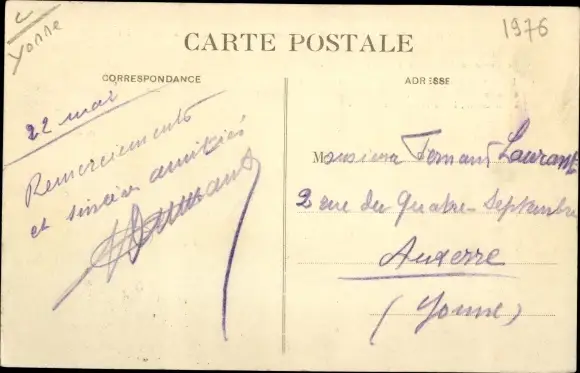 c
Yonne
1976
CARTE POSTALE
CORRESPONDANCE
22 mai
Remerciements
et sincères amitiés
ADRESSE
Monsieur Fernand Laurant
2 rue du Quatre-Septembre
Auxerre
(Yonne)